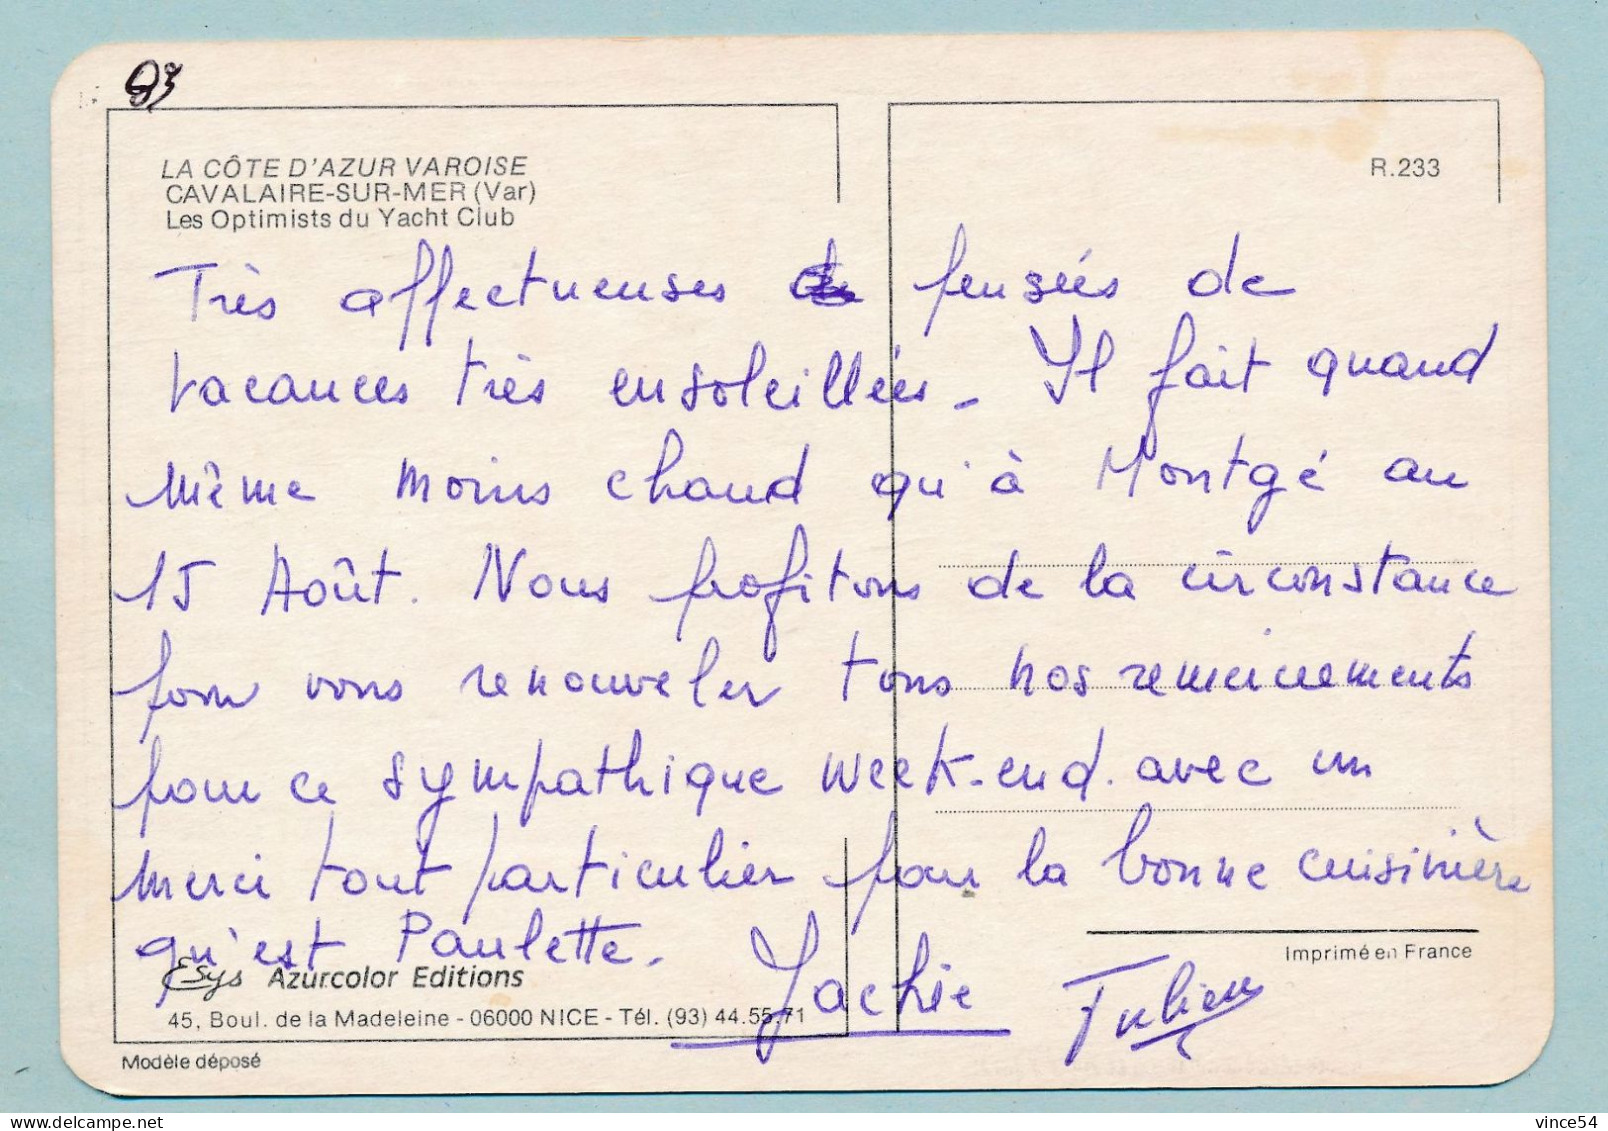 83
LA CÔTE D'AZUR VAROISE
CAVALAIRE-SUR-MER (Var)
Les Optimists du Yacht Club
R.233
Très affectueuses pensées de
vacances très ensoleillées - Il fait quand
même moins chaud qu'à Montgé au
15 Août. Nous profitons de la circonstance
pour vous renouveler tous nos remerciements
pour ce sympathique week-end. avec un
merci tout particulier pour la bonne cuisinière
qu'est Paulette.
Jackie
Julien
Esys Azurcolor Editions
45, Boul. de la Madeleine - 06000 NICE - Tél. (93) 44.55.71
Modèle déposé
Imprimé en France
delcampe.net
vince54